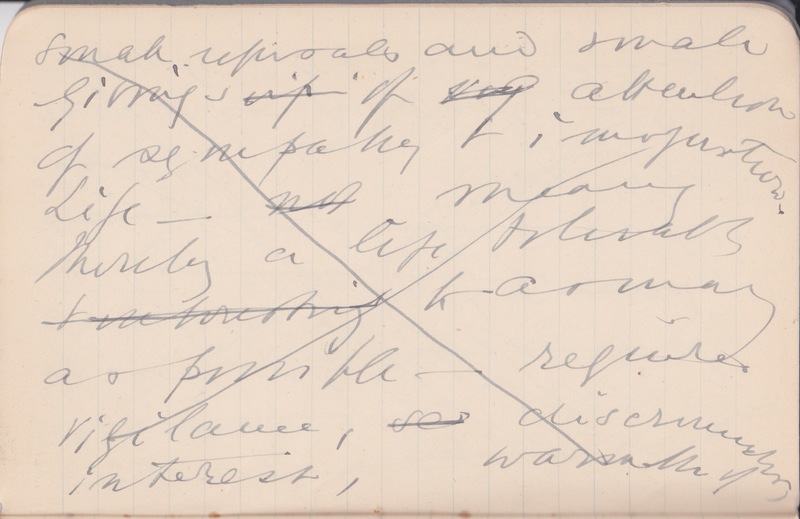 small reprisals and small
givings of attention
of sympathy & imagination.
Life — not meaning
thereby a life tolerable
& interesting to as many
as possible — requires
vigilance, discrimination
interest, warmth of